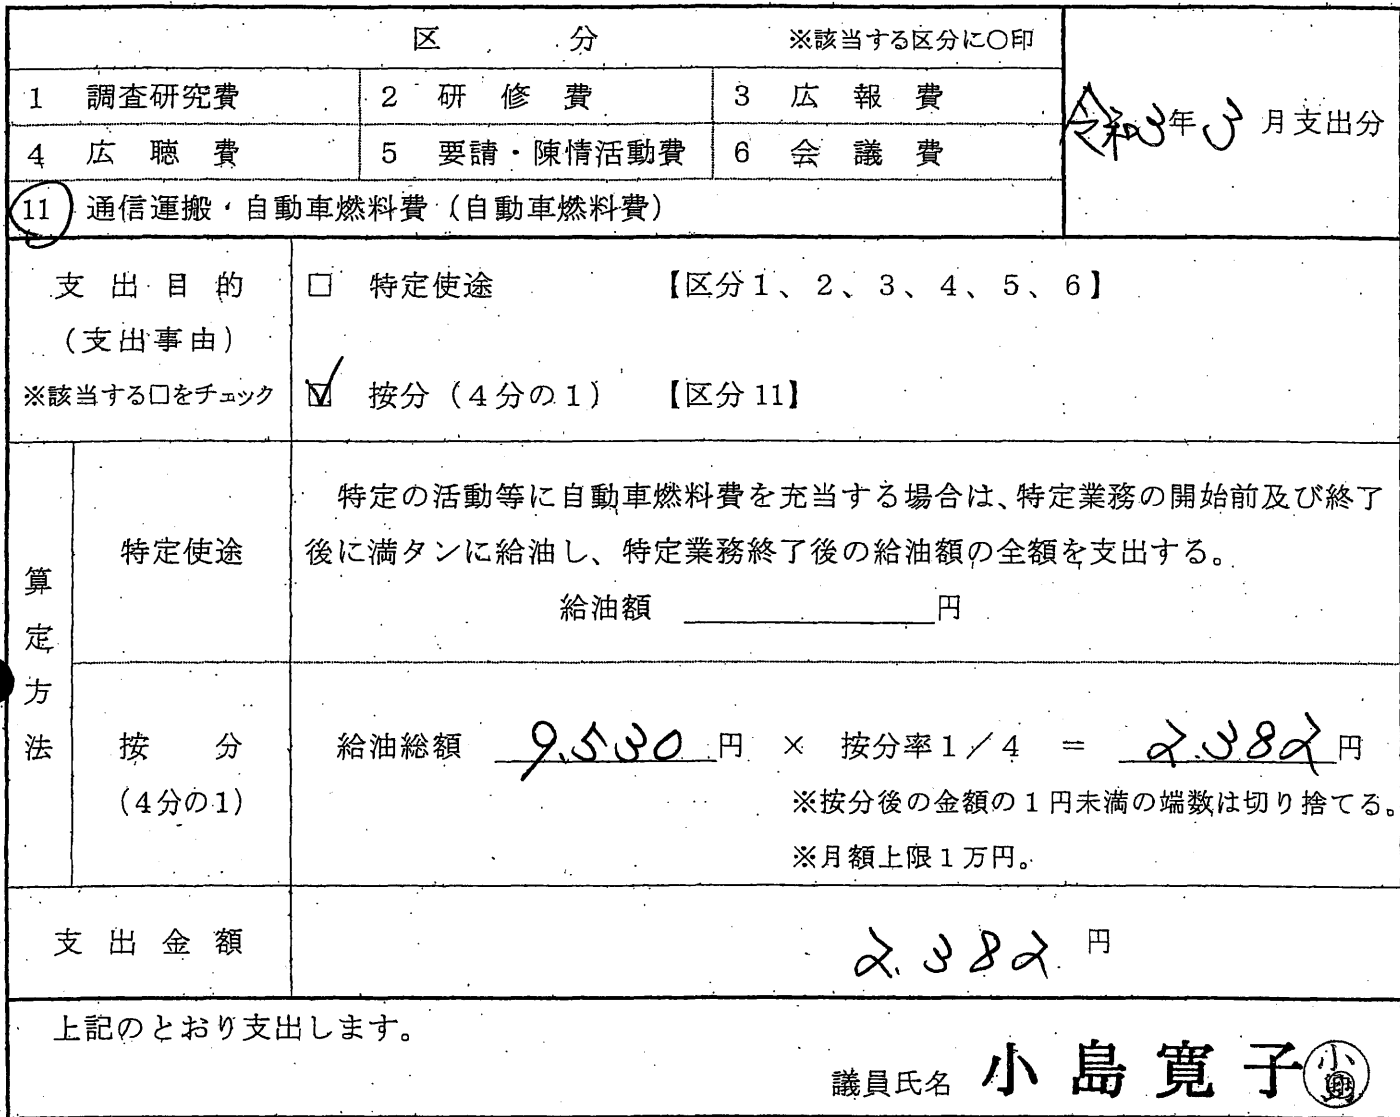 区 分 ※該当する区分に○印
1 調査研究費 2 研修費 3 広報費
令和3年3月支出分
4 広聴費 5 要請・陳情活動費 6 会議費
11 通信運搬・自動車燃料費(自動車燃料費)
支出目的
(支出事由)
※該当する□をチェック
□ 特定使途 【区分1、2、3、4、5、6】
☑ 按分(4分の1) 【区分11】
算定方法
特定使途
特定の活動等に自動車燃料費を充当する場合は、特定業務の開始前及び終了
後に満タンに給油し、特定業務終了後の給油額の全額を支出する。
給油額 円
按分
(4分の1)
給油総額 9,530 円 × 按分率1/4 = 2,382 円
※按分後の金額の1円未満の端数は切り捨てる。
※月額上限1万円。
支出金額 2,382 円
上記のとおり支出します。
議員氏名 小島寛子